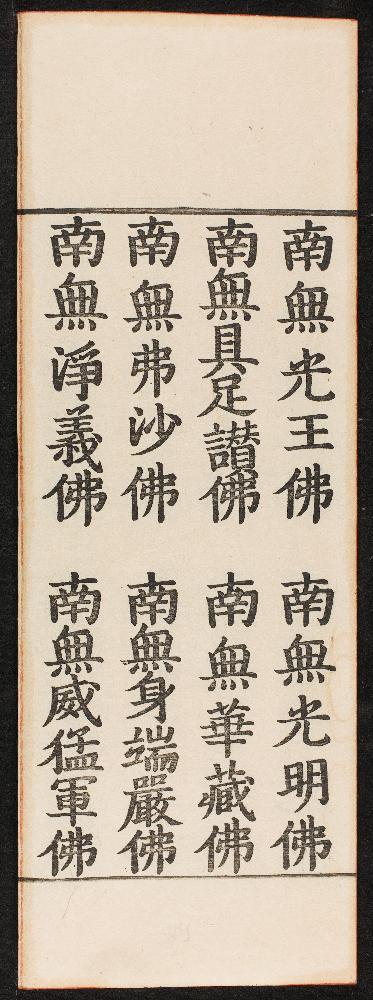 南無光王佛　南無光明佛
南無具足讃佛　南無華藏佛
南無弗沙佛　南無身端嚴佛
南無淨義佛　南無威猛軍佛